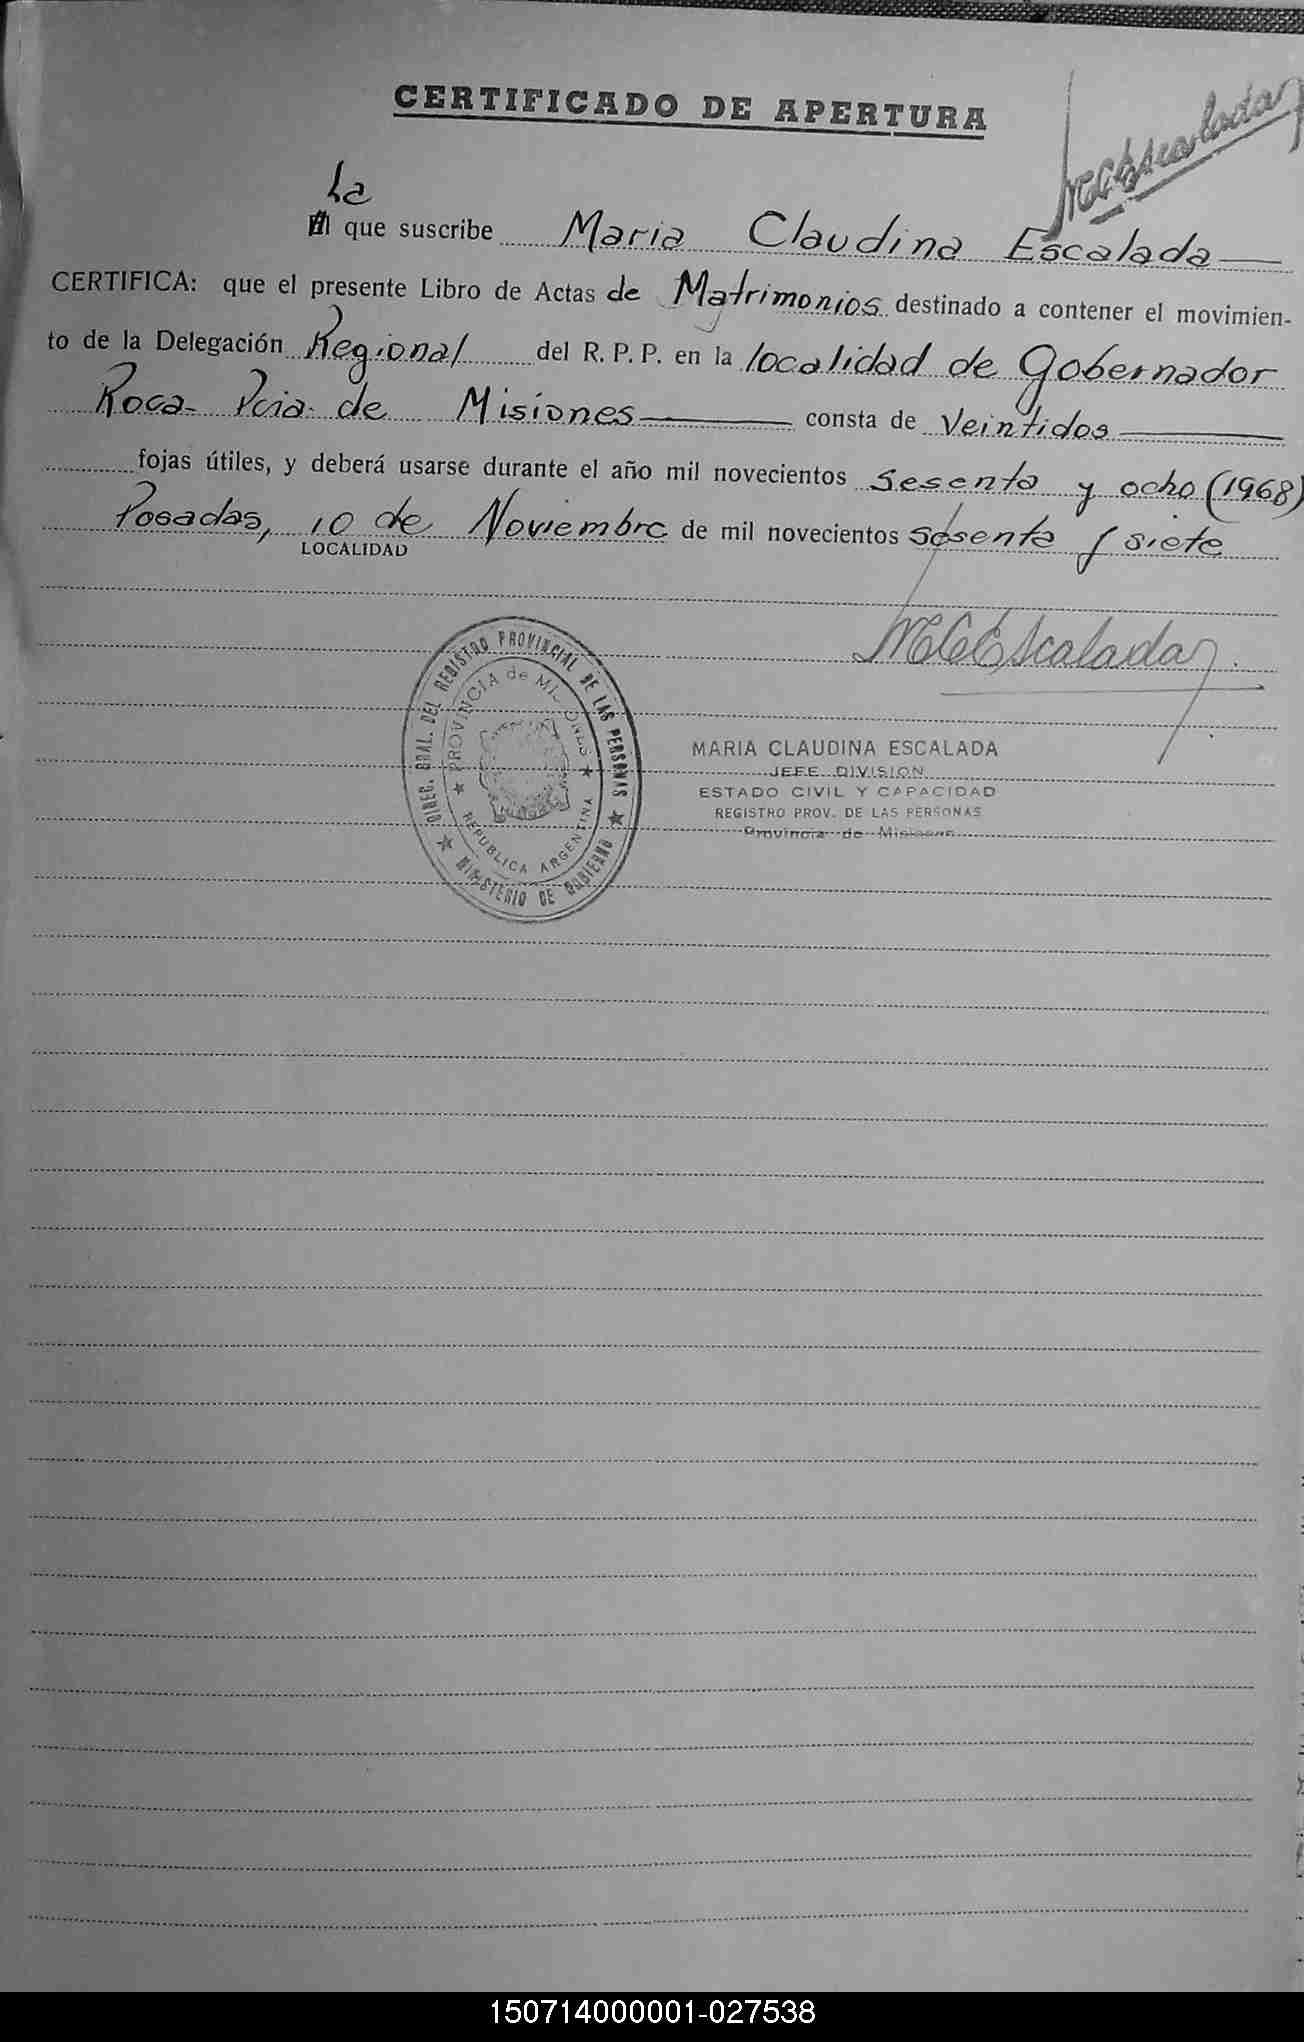 CERTIFICADO DE APERTURA
MCEscalada
La
El que suscribe Maria Claudina Escalada
CERTIFICA: que el presente Libro de Actas de Matrimonios destinado a contener el movimien-
to de la Delegación Regional del R. P. P. en la localidad de Gobernador
Roca- Pcia. de Misiones consta de Veintidos
fojas útiles, y deberá usarse durante el año mil novecientos sesenta y ocho (1968)
Posadas, 10 de Noviembre de mil novecientos sesenta y siete
LOCALIDAD
MCEscalada
DIREC. GRAL. DEL REGISTRO PROVINCIAL DE LAS PERSONAS
PROVINCIA de MISIONES
REPUBLICA ARGENTINA
MINISTERIO DE GOBIERNO
MARIA CLAUDINA ESCALADA
JEFE DIVISION
ESTADO CIVIL Y CAPACIDAD
REGISTRO PROV. DE LAS PERSONAS
Provincia de Misiones
150714000001-027538